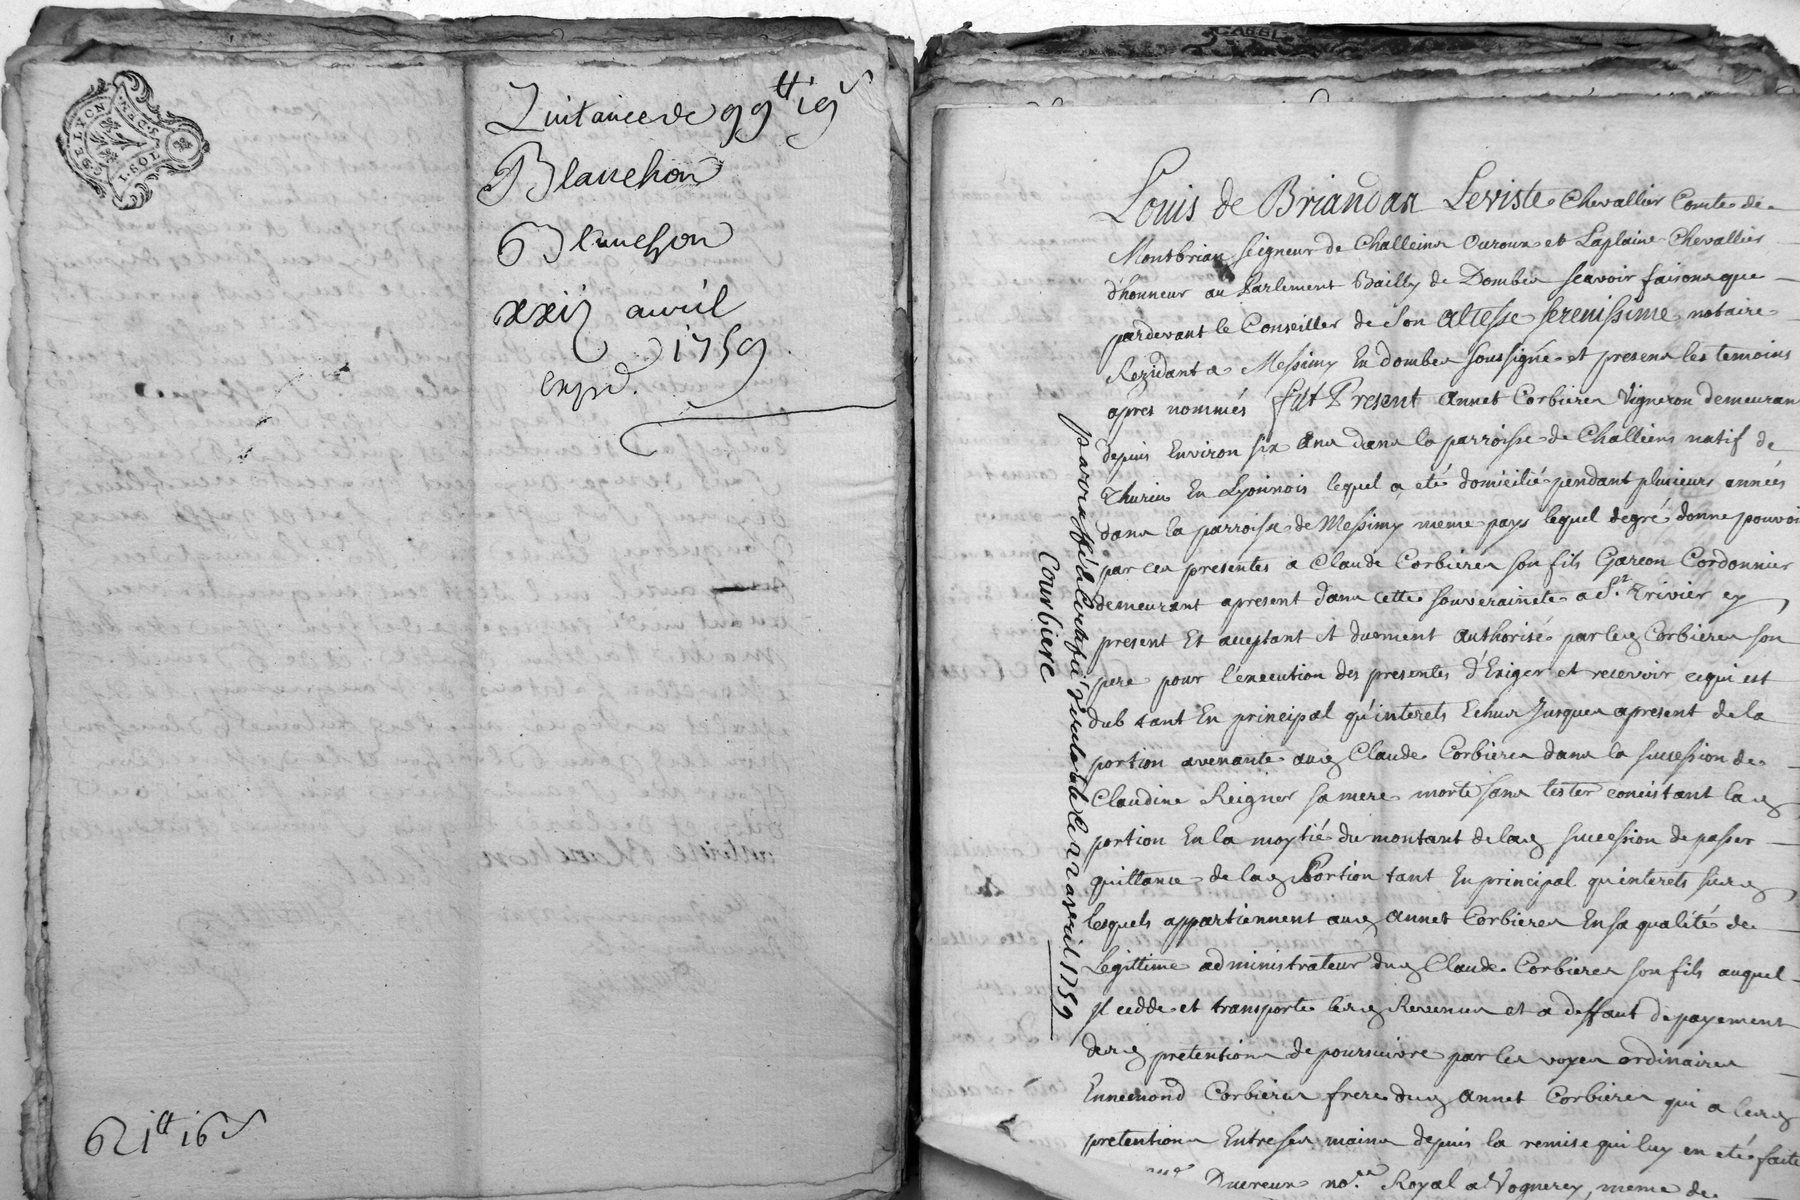 GEN. DE LYON
1. SOL
Quitance de 99tt 19s
Blanchon
Blanchon
xxij avril
1759
exp.d
621tt 16s
Louis de Briandas Leviste Chevallier Comte de
Montbrian seigneur de Challeins Ouroux et Laplaine Chevallier
d'honneur au Parlement Bailly de Dombes scavoir faisons que
pardevant le Conseiller de Son Altesse Serenissime notaire
Rezidant a Messimy En dombes soussigné et presens les temoins
apres nommés fut Present Annet Corbieres Vigneron demeurant
depuis Environ six Ans dans la parroisse de Challiens natif de
Thurins En Lyonnois lequel a eté domicilié pendant plusieurs années
dans la parroisse de Messimy meme pays lequel degré donne pouvoir
par ces presentes a Claude Corbieres son fils Garcon Cordonnier
demeurant apresent dans cette souveraineté a St Trivier cy
present Et aceptant et duement authorisé par led Corbieres son
pere pour l'execution des presentes d'Exiger et recevoir cequi est
dub tant En principal qu'interets Echus Jusques apresent de la
portion avenante aud Claude Corbieres dans la succession de
Claudine Reigner sa mere morte sans tester concistant lad
portion En la moytié du montant delad succession de passer
quittance de lad Portion tant En principal qu'interets surd
lesquels appartiennent aud Annet Corbieres En sa qualité de
Legittime administrateur dud Claude Corbieres son fils auquel
Il cedde et transporte lesd Revenus et a deffaut de payement
desd pretentions de poursuivre par les voyes ordinaires
Ennemond Corbieres frere dud Annet Corbieres qui a lesd
pretentions Entre ses mains depuis la remise qui luy en eté faite
Duereux no.re Royal a Vognerey, meme de
parraffé et certifié veritable ce 22 avril 1759
Courbiere